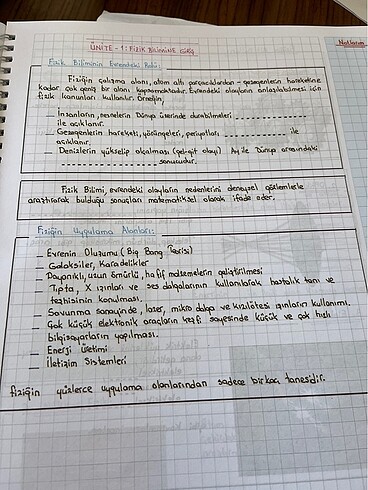 ÜNİTE - 1: FİZİK BİLİMİNE GİRİŞ
Notlarım
Fizik Biliminin Evrendeki Rolü:
Fiziğin çalışma alanı, atom altı parçacıklardan - gezegenlerin hareketine
kadar çok geniş bir alanı kapsamaktadır. Evrendeki olayların anlaşılabilmesi için
fizik kanunları kullanılır. Örneğin;
_ İnsanların, nesnelerin Dünya üzerinde durabilmeleri
ile açıklanır.
_ Gezegenlerin hareketi, yörüngeleri, periyotları ile
açıklanır.
_ Denizlerin yükselip alçalması (gel-git olayı) Ay ile Dünya arasındaki
sonucudur.
Fizik Bilimi, evrendeki olayların nedenlerini deneysel gözlemlerle
araştırarak bulduğu sonuçları matematiksel olarak ifade eder.
Fiziğin Uygulama Alanları:
_ Evrenin Oluşumu (Big Bang Teorisi)
_ Galaksiler, Karadelikler
_ Dayanıklı, uzun ömürlü, hafif malzemelerin geliştirilmesi
_ Tıpta, X ışınları ve ses dalgalarının kullanılarak hastalık tanı ve
teşhisinin konulması.
_ Savunma sanayinde, lazer, mikro dalga ve kızılötesi ışınların kullanımı.
_ Çok küçük elektronik araçların keşfi sayesinde küçük ve çok hızlı
bilgisayarların yapılması.
_ Enerji Üretimi
_ İletişim Sistemleri
fiziğin yüzlerce uygulama alanlarından sadece birkaç tanesidir.